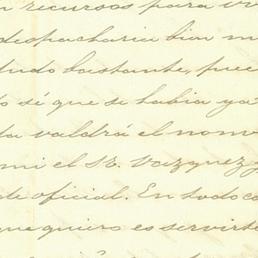 n recursos para vi
despacharia bien m
dudo bastante, pue
o sé que se habia ya
ta valdrá el nom
mi el Sr. Vazquez y
de oficial. En todo co
que quiero es servirte